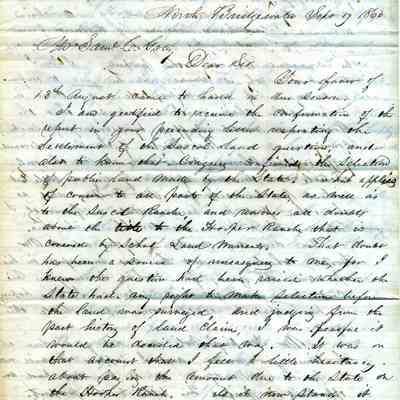 North Bridgewater Sept 17 1866
Saml C.
Dear Sir
Your favor of
13th August came to hand in due season.
I am gratified to receive the confirmation of the
report in your preceding letter respecting the
Settlement of the Suscol Land question, and
also to know that Congress confirms the Selection
of public land made by the State, which applies
of course to all parts of the State, as well as
to the Suscol Ranch, and removes all doubts
about the title to the Hooper Ranch, that is
covered by School Land Warrants. That doubt
has been a source of uneasiness to me, for I
knew the question had been raised whether the
State had any right to make selections before
the land was surveyed. And judging from the
past history of Land Claims, I was fearful it
would be decided that way. It was on
that account that I felt a little hesitancy
about paying the amount due to the State on
the Hooper Ranch. As it now stands it